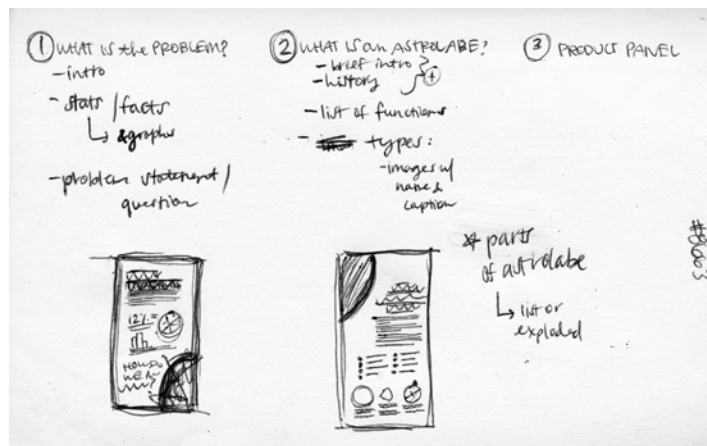 ① WHAT IS the PROBLEM?
- intro
- stats / facts
↳ & graphs
- problem statement /
question
② WHAT IS an ASTROLABE?
- brief intro
- history
+
- list of functions
- types:
- images w/
name &
caption
③ PRODUCT PANEL
* parts
of astrolabe
↳ list or
exploded
12% =
HOW DO
WE